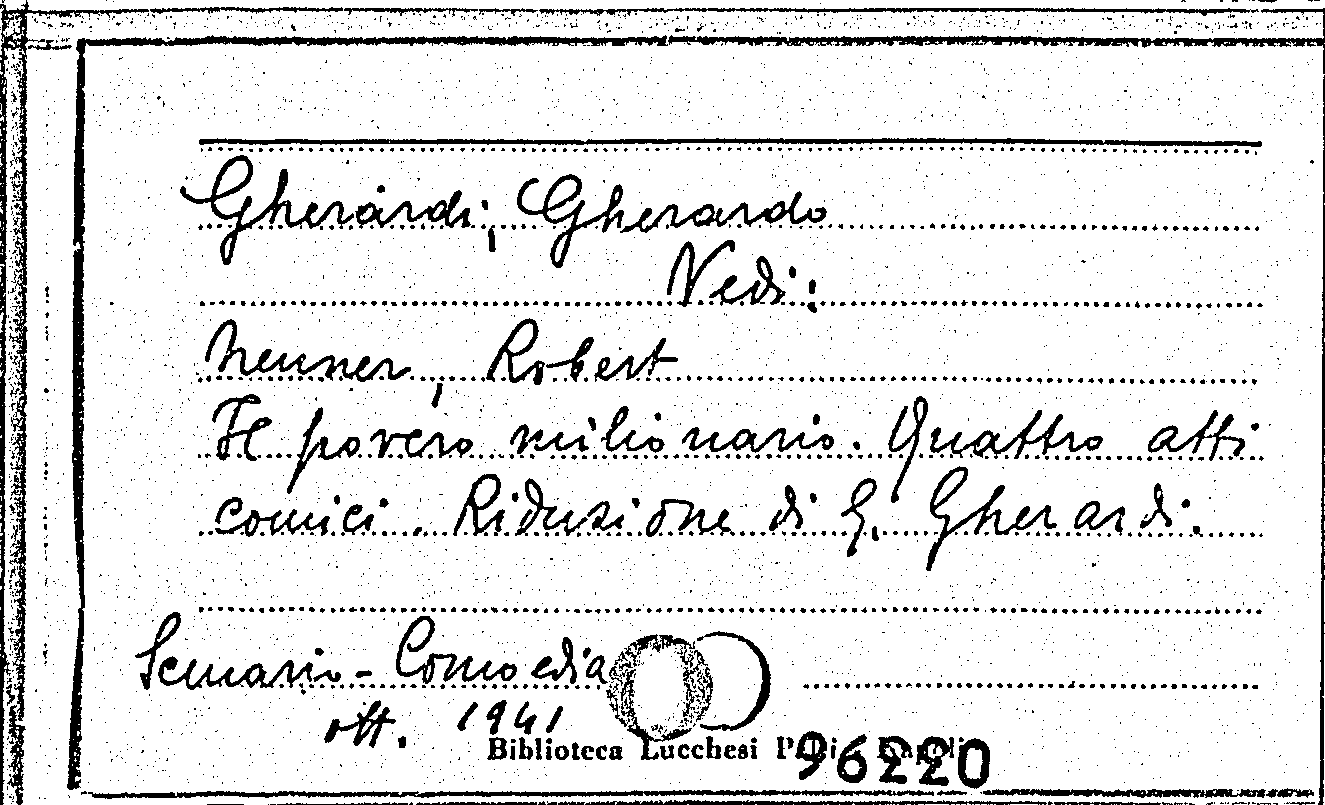 Gherardi, Gherardo
Vedi:
Neuner, Robert
Il povero milionario. Quattro atti
comici. Riduzione di G. Gherardi.
Scenario - Comoedia
ott. 1941
Biblioteca Lucchesi
96220